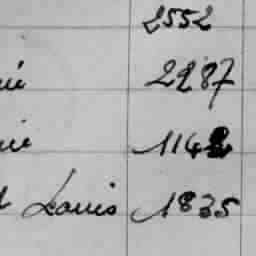 2552
2287
1142
Louis 1835